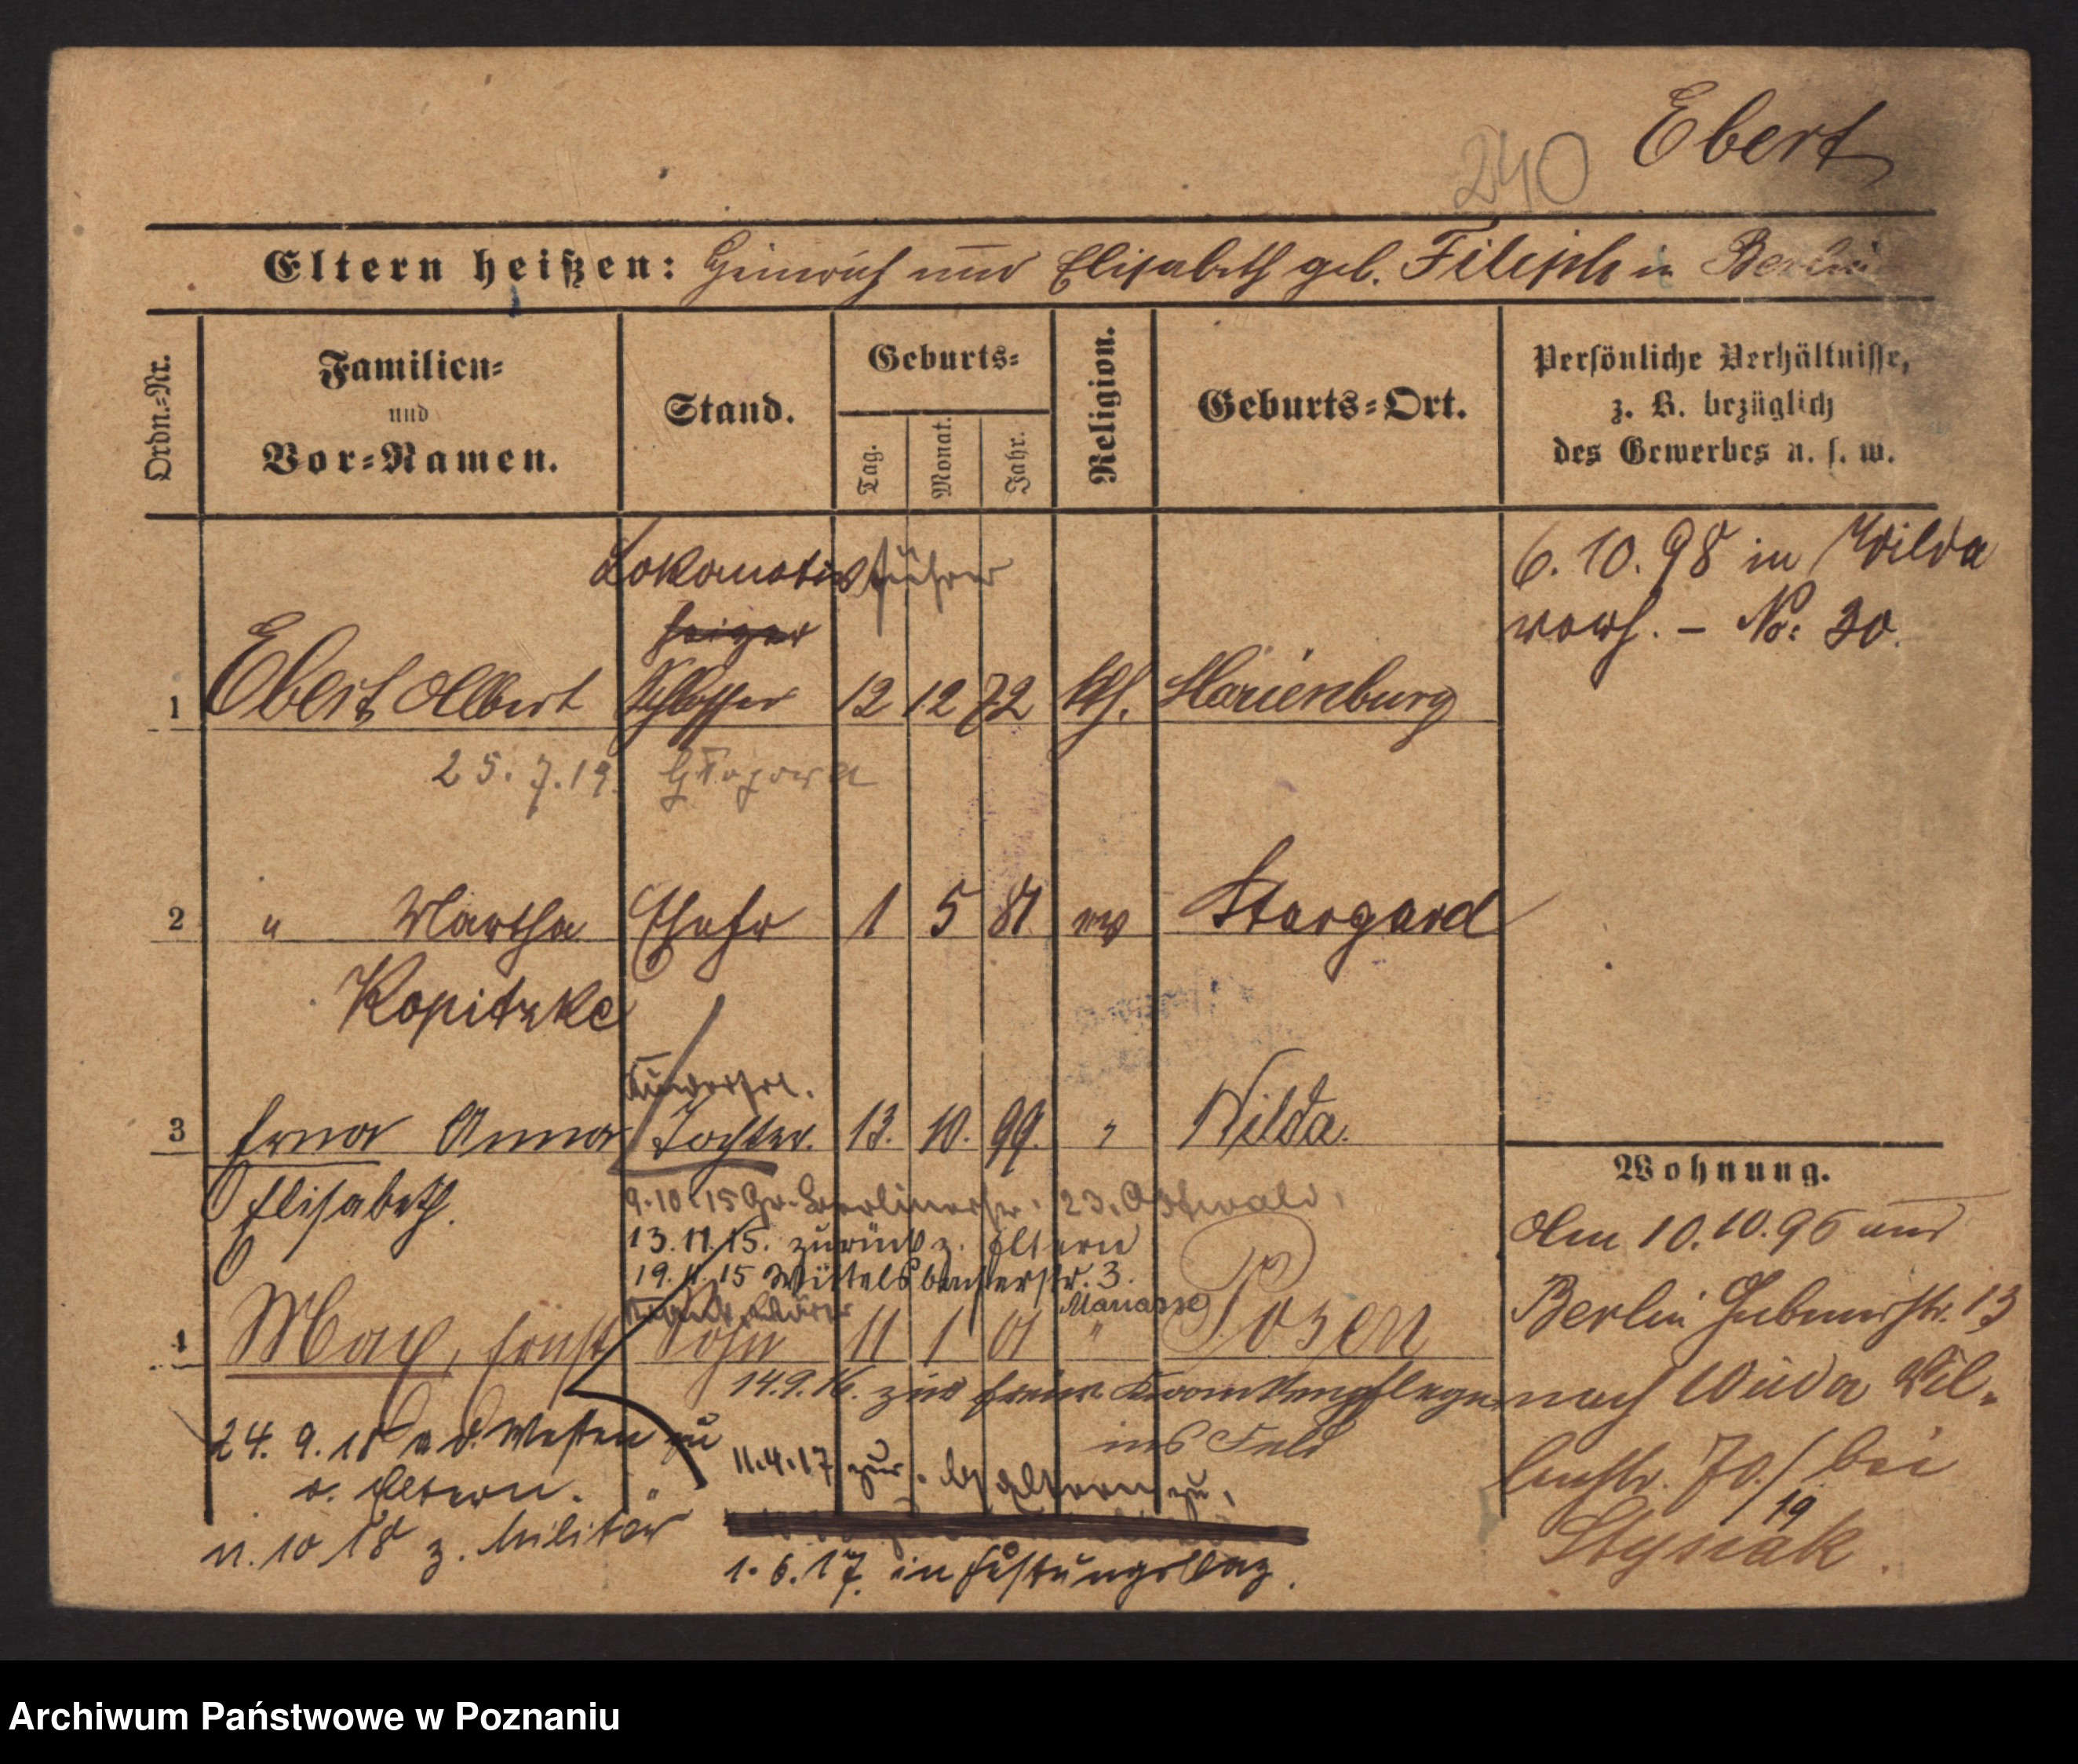 Ebert
240
Eltern heißen: Heinrich und Elisabeth geb. Filiph in Berlin
Ordn.-Nr.
Familien-
und
Vor-Namen.
Stand.
Geburts-
Tag.
Monat.
Jahr.
Religion.
Geburts-Ort.
Persönliche Verhältnisse,
z. B. bezüglich
des Gewerbes u. s. w.
6. 10. 98 in Wilda
. – No: 30.
Lokomotivführer
heizer
1 Ebert Albert Schlosser 12 12 72 kth. Marienburg
25. 7. 19. Głogowa
2 " Martha Ehefr 1 5 81 ev Stargard
Kopitzke
Kinderfrl.
3 Erna Anna Tochter. 13. 10. 99. " Wilda.
Elisabeth.
9.10.15 Gr. Berlinerstr. 23. Ostwald.
13.11.15. zurück z. Eltern
19.11.15 Wittelsbacherstr. 3.
Manasse
4 Max, Ernst Sohn 11 1 01 " Posen
14.9.16. zur freiw. Krankenpflege
ins Feld
24. 9. 18 a. d. Westen zu
d. Eltern.
11.4.17 zur. d. Eltern zu.
11. 10 18 z. Militär
1. 6. 17. in Festungslaz.
Wohnung.
Am 10. 10. 96 aus
Berlin str. 13
nach Wilda Wil-
lastr. 70./ bei
19
Stysiak.
Archiwum Państwowe w Poznaniu